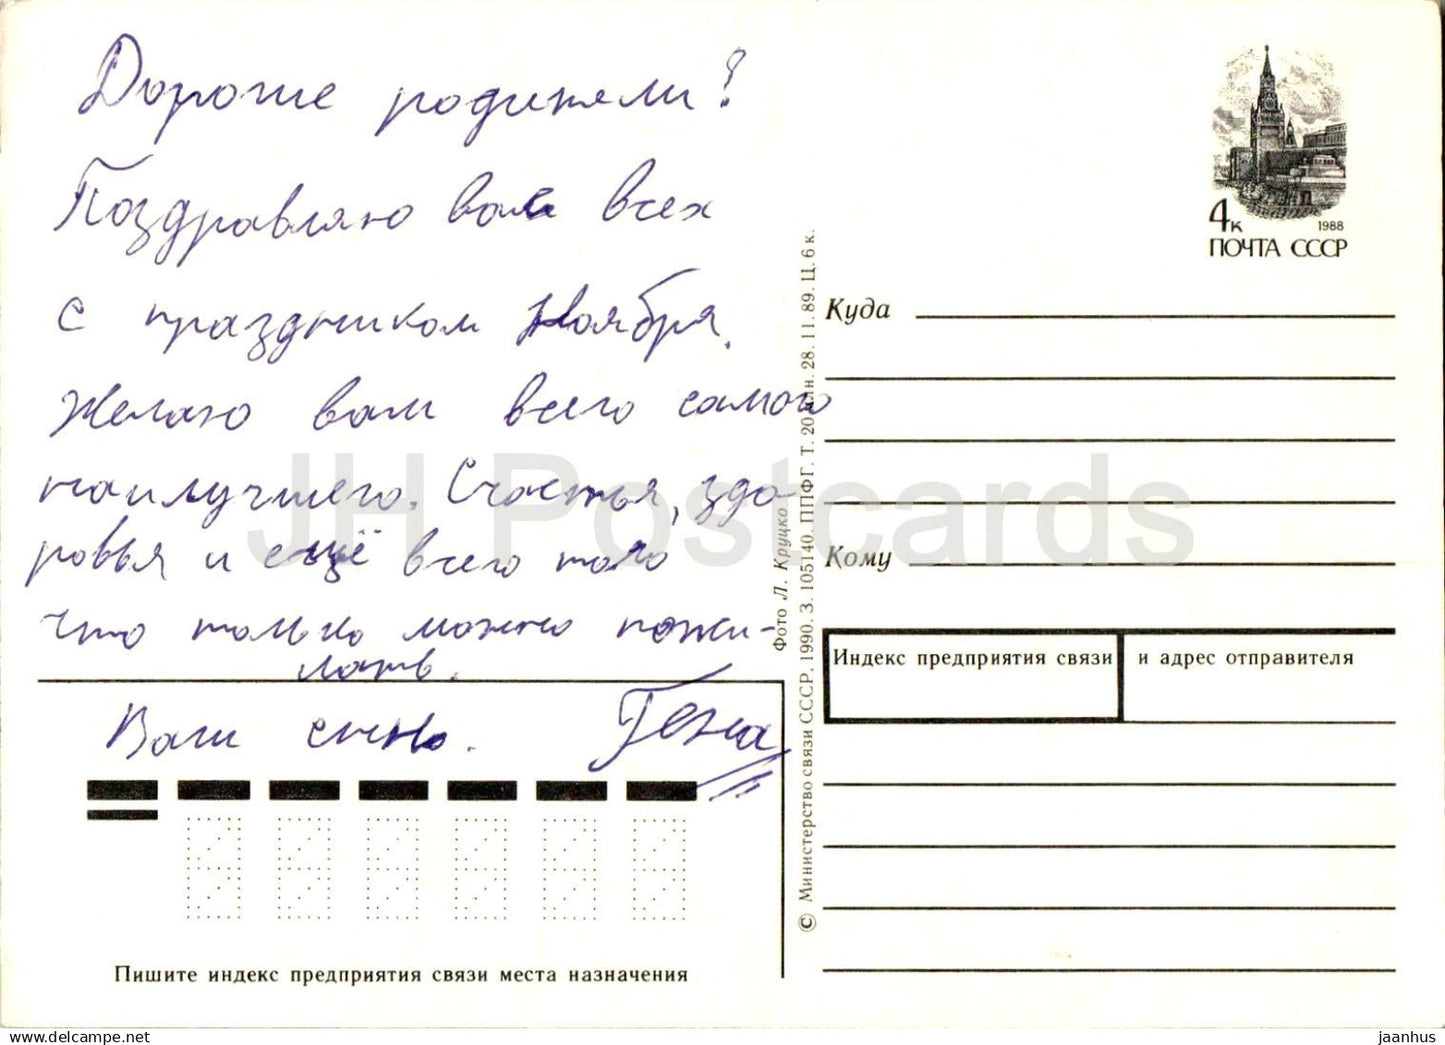 Дорогие родители!
Поздравляю вас всех
с праздником Ноября.
Желаю вам всего самого
наилучшего. Счастья, здо-
ровья и ещё всего того
что только можно пожи-
лать.
Ваш сын. Гена
4к 1988
ПОЧТА СССР
Куда
Кому
Индекс предприятия связи и адрес отправителя
Пишите индекс предприятия связи места назначения
Фото Л. Круцко
© Министерство связи СССР, 1990. З. 105140. ППФГ. Т. 20 млн. 28. 11. 89. Ц. 6 к.
JH Postcards
www.delcampe.net
jaanhus